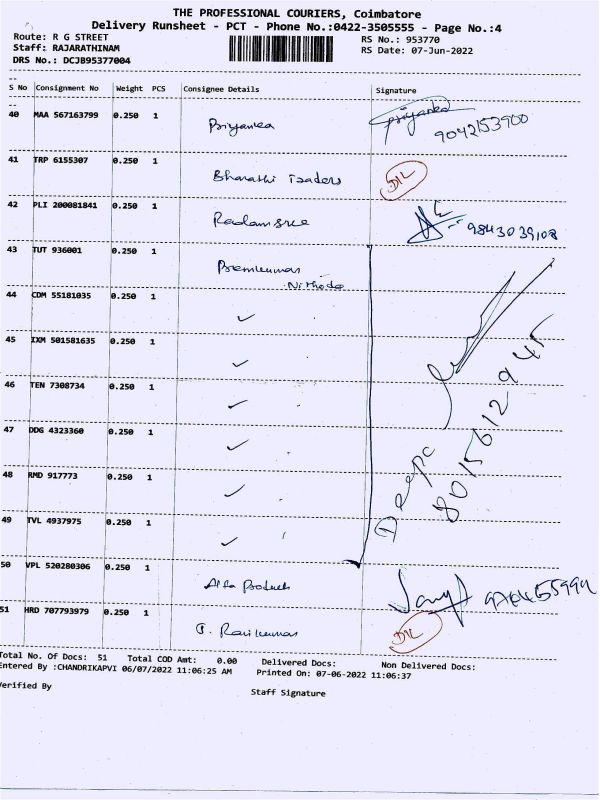 THE PROFESSIONAL COURIERS, Coimbatore
Delivery Runsheet - PCT - Phone No.:0422-3505555 - Page No.:4
Route: R G STREET
RS No.: 953770
Staff: RAJARATHINAM
RS Date: 07-Jun-2022
DRS No.: DCJB95377004
S No Consignment No Weight PCS Consignee Details Signature
40 MAA 567163799 0.250 1 Priyanka Priyanka
9042153900
41 TRP 6155307 0.250 1 Bharathi Traders D/L
42 PLI 200081841 0.250 1 Radamsree 9843039108
43 TUT 936001 0.250 1 Premkumar
44 CDM 55181035 0.250 1 ✓
45 IXM 501581635 0.250 1 ✓
46 TEN 7308734 0.250 1 ✓
47 DDG 4323360 0.250 1 ✓
48 RMD 917773 0.250 1 ✓
49 TVL 4937975 0.250 1 ✓
Deepa
8015612945
50 VPL 520280306 0.250 1 Alfa Products
51 HRD 707793979 0.250 1 J. Ravikumar D/L
Total No. Of Docs: 51 Total COD Amt: 0.00 Delivered Docs: Non Delivered Docs:
Entered By :CHANDRIKAPVI 06/07/2022 11:06:25 AM Printed On: 07-06-2022 11:06:37
Verified By
Staff Signature